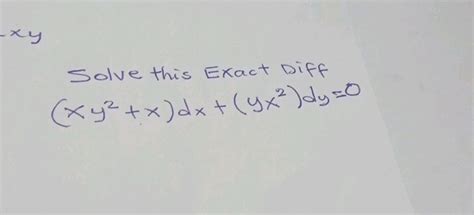 -xy
Solve this Exact Diff
(xy²+x)dx+(yx²)dy=0